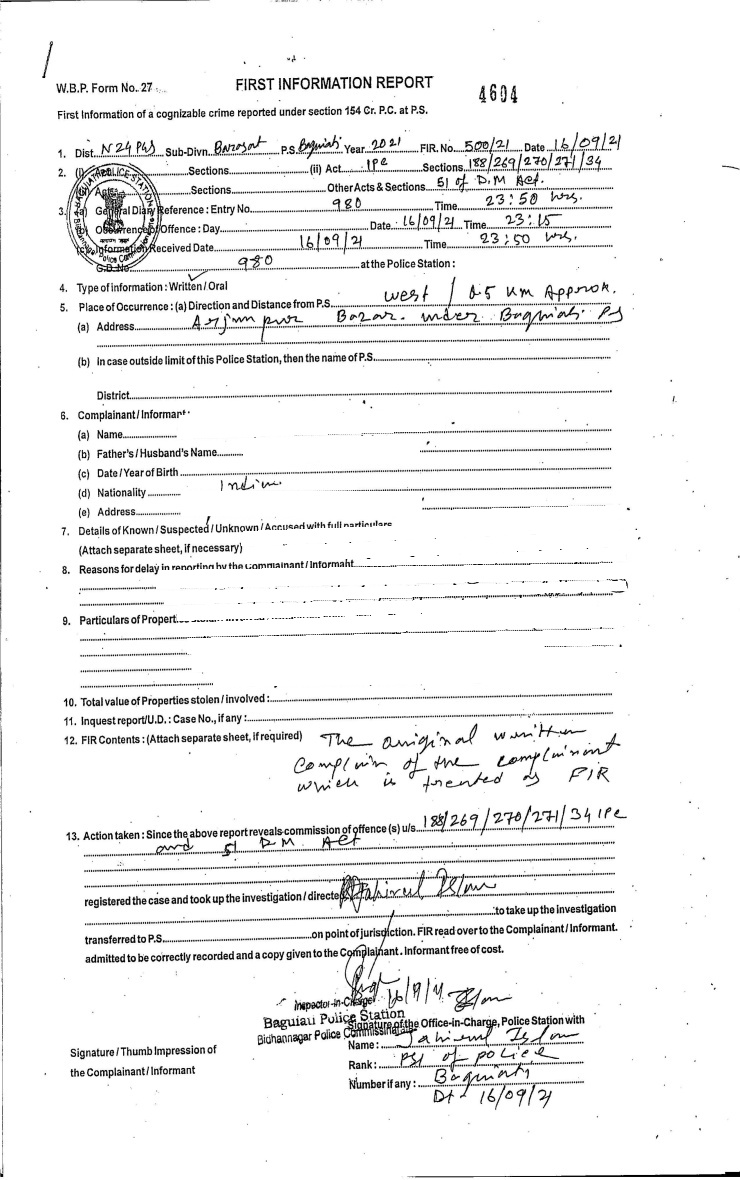 W.B.P. Form No. 27
FIRST INFORMATION REPORT
4604
First Information of a cognizable crime reported under section 154 Cr. P.C. at P.S.
1. Dist. N 24 PGS Sub-Divn. Barasat P.S. Baguiati Year 2021 FIR. No. 500/21 Date 16/09/21
2. (i) Sections (ii) Act IPC Sections 188/269/270/271/34
Sections Other Acts & Sections 51 of D.M Act.
3. (a) General Diary Reference : Entry No. 980 Time 23:50 hrs.
Occurrence of Offence : Day Date 16/09/21 Time 23:15
(c) Information Received Date 16/09/21 Time 23:50 hrs.
G.D. No. 980 at the Police Station :
4. Type of information : Written / Oral
5. Place of Occurrence : (a) Direction and Distance from P.S. west / 0.5 km Approx.
(a) Address Arjunpur Bazar. under Baguiati PS
(b) In case outside limit of this Police Station, then the name of P.S.
District
6. Complainant / Informant
(a) Name
(b) Father's / Husband's Name
(c) Date / Year of Birth
(d) Nationality Indian
(e) Address
7. Details of Known / Suspected / Unknown / Accused with full particulars
(Attach separate sheet, if necessary)
8. Reasons for delay in reporting by the Commainant / Informaht
9. Particulars of Propert
10. Total value of Properties stolen / involved :
11. Inquest report/U.D. : Case No., if any :
12. FIR Contents : (Attach separate sheet, if required) The original written
complain of the complainant
which is treated as FIR
13. Action taken : Since the above report reveals commission of offence (s) u/s. 188/269/270/271/34 IPC
and 51 D.M Act
registered the case and took up the investigation / directe Jahirul Islam
to take up the investigation
transferred to P.S. on point of jurisdiction. FIR read over to the Complainant / Informant.
admitted to be correctly recorded and a copy given to the Complainant. Informant free of cost.
16/9/21
Inspector-in-Charge
Baguiati Police Station
Bidhannagar Police Commissionerate
Signature of the Office-in-Charge, Police Station with
Name : Jahirul Islam
Signature / Thumb Impression of
the Complainant / Informant
Rank : PSI of police
Number if any : Baguiati
Dt - 16/09/21